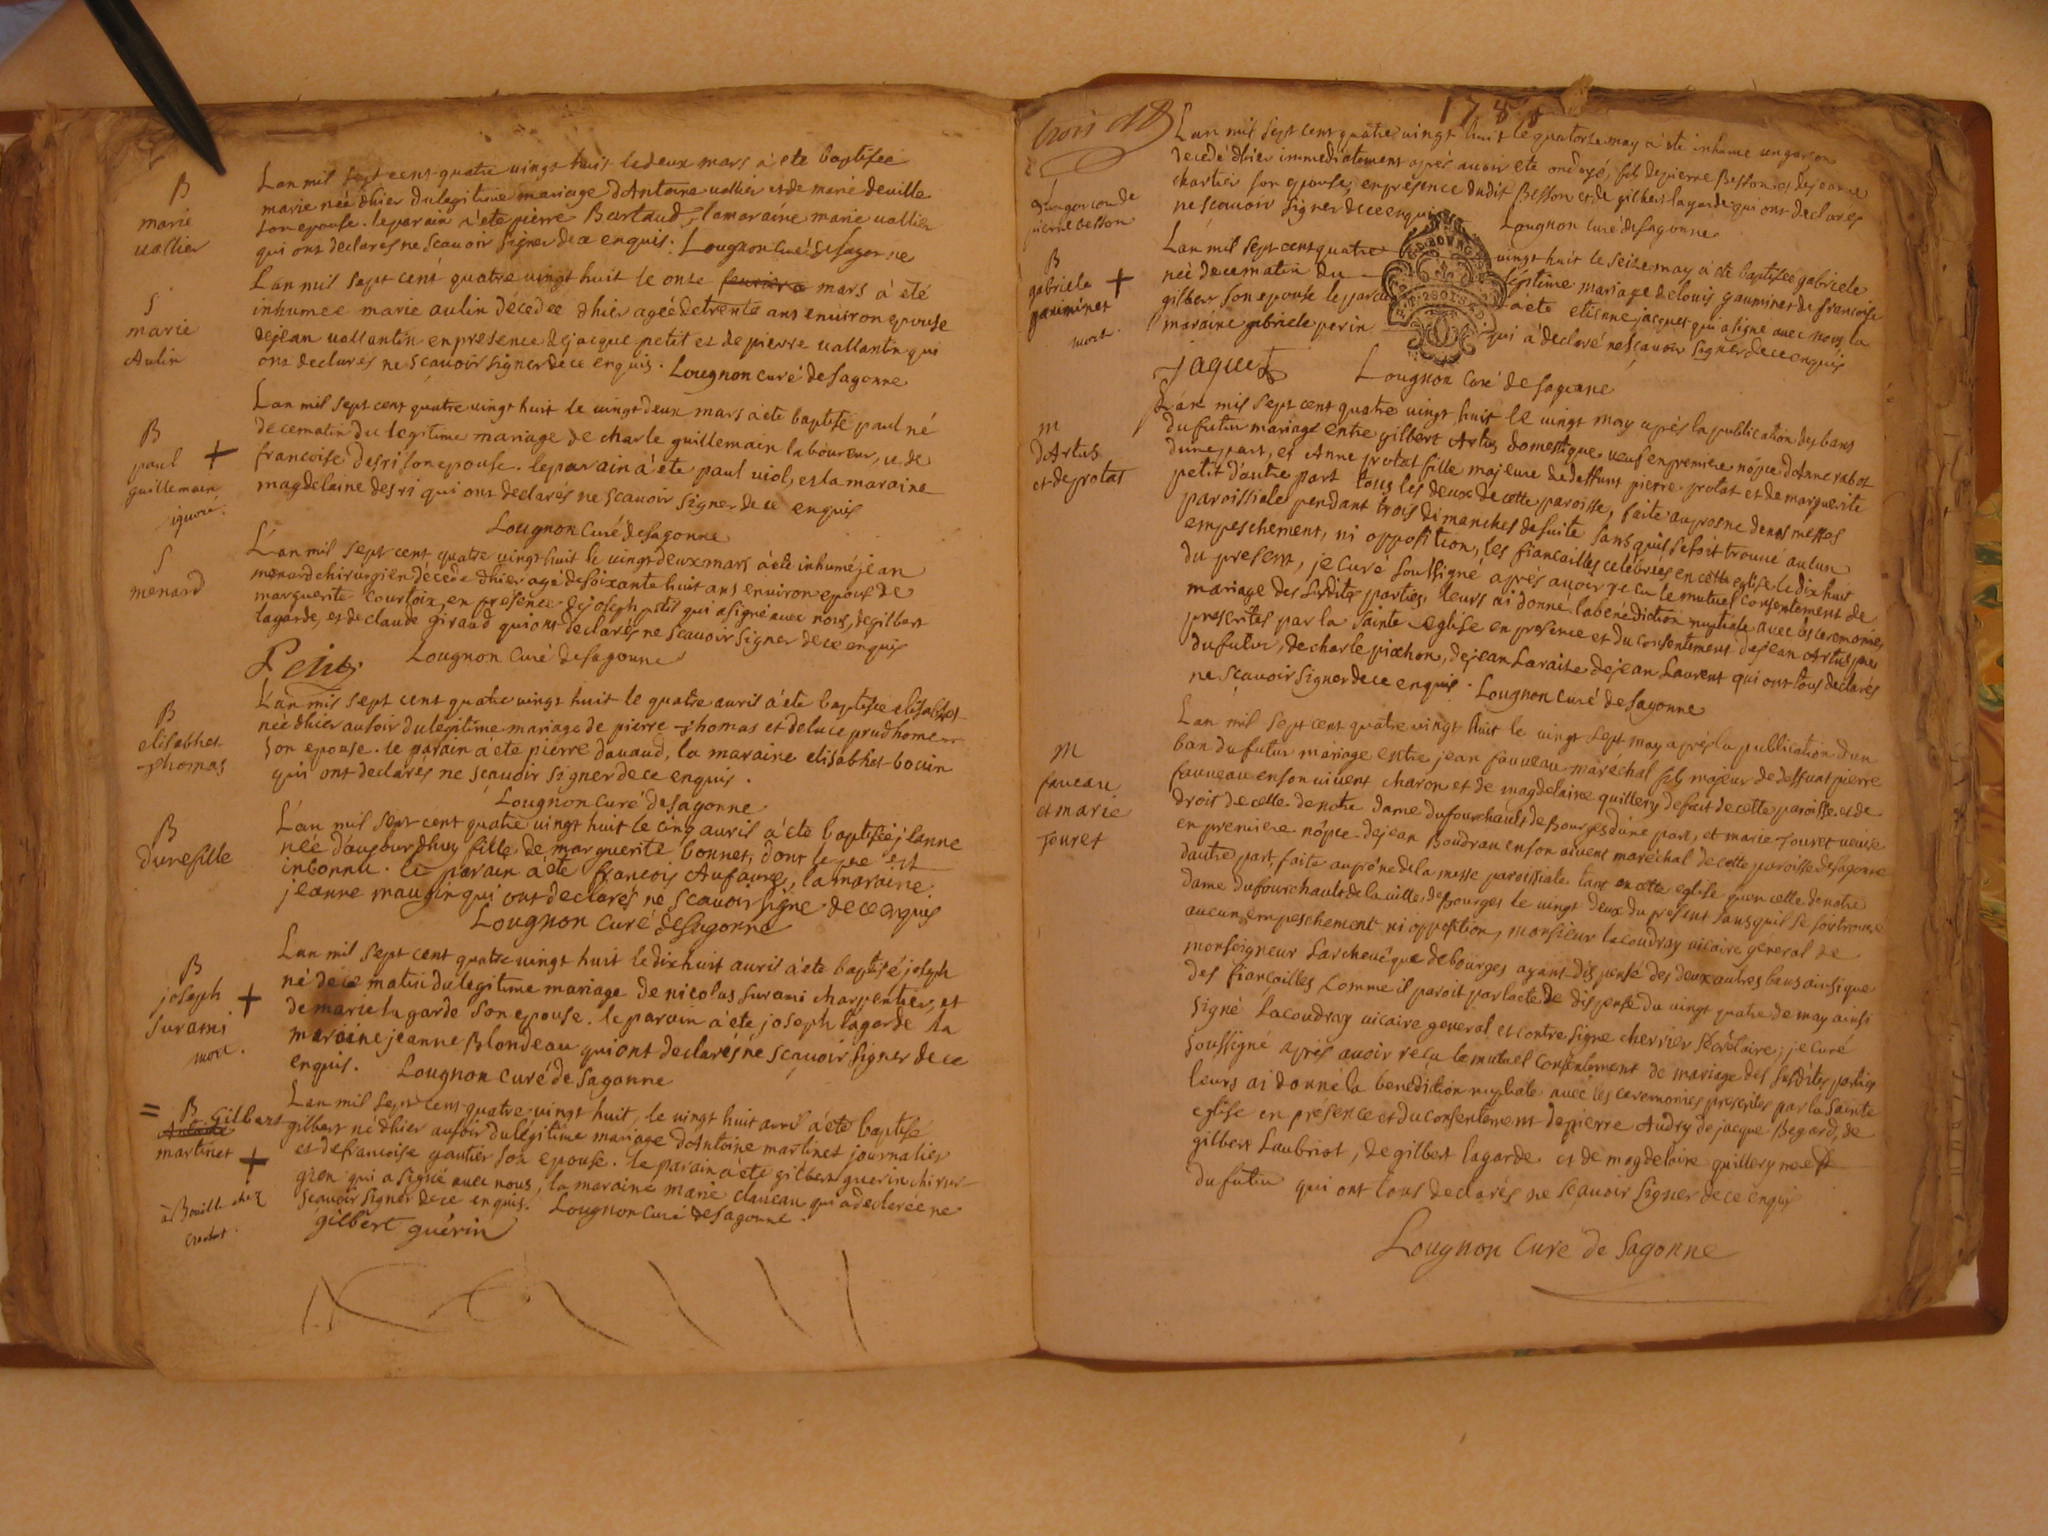 B
marie
vallier
Lan mil sept cent quatre vingt huit le deux mars à ete baptisée
marie née dhier du legitime mariage d'Antoine vallier et de marie deville
son epouse. le parain a ete pierre Bartaud, la maraine marie vallier
qui ont declarés ne scavoir signer de ce enquis. Lougnon curé de sagonne
S
marie
Aulin
Lan mil sept cent quatre vingt huit le onze fevrier mars à été
inhumée marie aulin décedée dhier agée de trente ans environ epouse
de jean vallantin en presence de jacque petit et de pierre vallantin qui
ont declarés ne scavoir signer de ce enquis. Lougnon curé de sagonne
B
paul +
guillemain
ignoré.
Lan mil sept cent quatre vingt huit le vingt deux mars à ete baptisé paul né
de ce matin du legitime mariage de charle guillemain laboureur, et de
francoise desri son epouse. le parain à ete paul viol, et la maraine
magdelaine desri qui ont declarés ne scavoir signer de ce enquis
Lougnon Curé de sagonne
S
menard
L'an mil sept cent quatre vingt huit le vingt deux mars à ete inhumé jean
menard chirurgien décédé dhier agé de soixante huit ans environ epoux de
marguerite Courtoix, en presence de joseph petit qui a signé avec nous, de gilbert
lagarde, et de claude giraud qui ont declarés ne scavoir signer de ce enquis
Petit Lougnon Curé de sagonne
B
elisabhet
thomas
L'an mil sept cent quatre vingt huit le quatre avril à ete baptisée elisabhet
née dhier au soir du legitime mariage de pierre thomas et de luce prudhomme
son epouse. le parain à ete pierre davaud, la maraine elisabhet bouin
qui ont declarés ne scavoir signer de ce enquis.
Lougnon Curé de sagonne
B
dune fille
L'an mil sept cent quatre vingt huit le cinq avril à été baptisée jeanne
née d'aujourdhuy fille de marguerite bonnet, dont le pere est
inconnu. le parain à été francois Aufaure, la maraine
jeanne maugin qui ont declarés ne scavoir signé de ce enquis
Lougnon Curé de Sagonne
B
joseph +
Surami
mort.
Lan mil sept cent quatre vingt huit le dix huit avril à ete baptisé joseph
né de ce matin du legitime mariage de nicolas surami charpentier, et
de marie la garde son epouse. le parain à ete joseph lagarde la
maraine jeanne Blondeau qui ont declarés ne scavoir signer de ce
enquis. Lougnon curé de Sagonne
= B Gilbert
martinet +
à Bouill chez
Lan mil sept cent quatre vingt huit, le vingt huit avril à été baptisé
gilbert né dhier au soir du légitime mariage d'Antoine martinet journalier
et de francoise gautier son epouse. le parain à été gilbert guerin chirur-
gien qui a signé avec nous, la maraine marie claveau qui a declarée ne
scavoir signer de ce enquis. Lougnon Curé de Sagonne.
gilbert guérin
1788
trois
d'un garcon de
pierre besson
Lan mil sept cent quatre vingt huit le quatorze may à été inhumé un garcon
decedé dhier immediatement après avoir ete ondoyé, fils de pierre Besson et de jeanne
chartier son epouse, en presence dudit Besson et de gilbert lagarde qui ont declarés
ne scavoir signer de ce enquis Lougnon Curé de sagonne
B
gabriele +
gauminet
mort.
Lan mil sept cent quatre vingt huit le seize may à eté baptisée gabriele
née de ce matin du légitime mariage de louis gauminet de francoise
gilbert son epouse le parain à ete etienne jacquet qui a signé avec nous, la
maraine gabriele perin qui à declaré ne scavoir signer de ce enquis
jaquet Lougnon Curé de sagonne
M
d'Artus
et de protat
Lan mil sept cent quatre vingt huit le vingt may après la publication des bans
du futur mariage entre gilbert Artus domestique veuf en premiere nôpce d'Anne rabot
dune part, et Anne protat fille majeure de deffunt pierre protat et de marguerite
petit d'autre part tous les deux de cette paroisse, faite au prosne de nos messes
paroissiale pendant trois dimanches de suite sans qu'il se soit trouvé aucun
empeschement, ni opposition, les fiancailles célébrées en cette eglise le dix huit
du present, je Curé soussigné après avoir recu le mutuel consentement de
mariage des susdites parties, leurs ai donné la bénédiction nuptiale avec les ceremonies
prescrites par la sainte eglise en presence et du consentement de jean Artus pere
du futur, de charle pichon, de jean Laraise de jean Laurent qui ont tous declarés
ne scavoir signer de ce enquis. Lougnon Curé de Sagonne
M
fauveau
et marie
Touret
Lan mil sept cent quatre vingt huit le vingt sept may après la publication d'un
ban du futur mariage entre jean fauveau maréchal fils majeur de deffunt pierre
fauveau en son vivent charon et de magdelaine quillery de fait de cette paroisse et de
droit de celle de notre dame du fourchault de Bourges d'une part, et marie Touret veuve
en premiere nôpce de jean Boudrau en son vivent maréchal de cette paroisse de sagonne
dautre part, faite au prône de la messe paroissiale tant en cette eglise qu'en celle de notre
dame du fourchault de la ville de Bourges le vingt deux du present sans qu'il se soit trouvé
aucun empeschement ni opposition, monsieur lacoudray vicaire general de
monseigneur Larchevêque de bourges ayant dispensé des deux autres bans ainsi que
des fiancailles comme il paroit par lacte de dispense du vingt quatre de may ainsi
signé Lacoudray vicaire general et contre signé cherrier secretaire; je curé
soussigné après avoir recu le mutuel consentement de mariage des susdites parties
leurs ai donné la benediction nuptiale avec les ceremonies prescrites par la Sainte
eglise en présence et du consentement de pierre Audry de jacque Begard, de
gilbert Laubriot, de gilbert lagarde et de magdelaine quillery mere
du futur qui ont tous declarés ne scavoir signer de ce enquis
Lougnon Curé de Sagonne